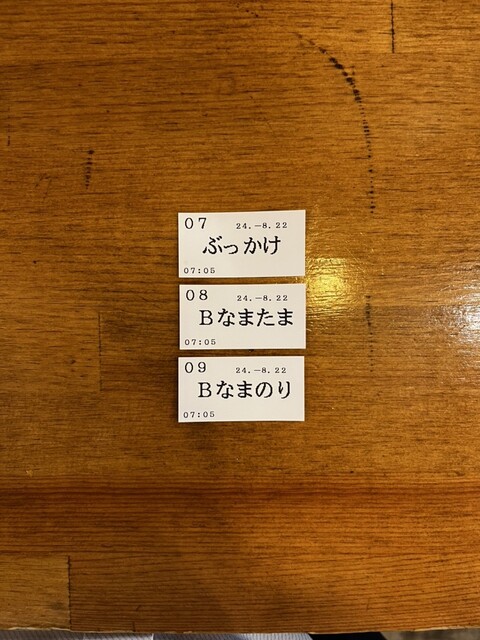 07 24.-8.22
ぶっかけ
07:05
08 24.-8.22
Bなまたま
07:05
09 24.-8.22
Bなまのり
07:05